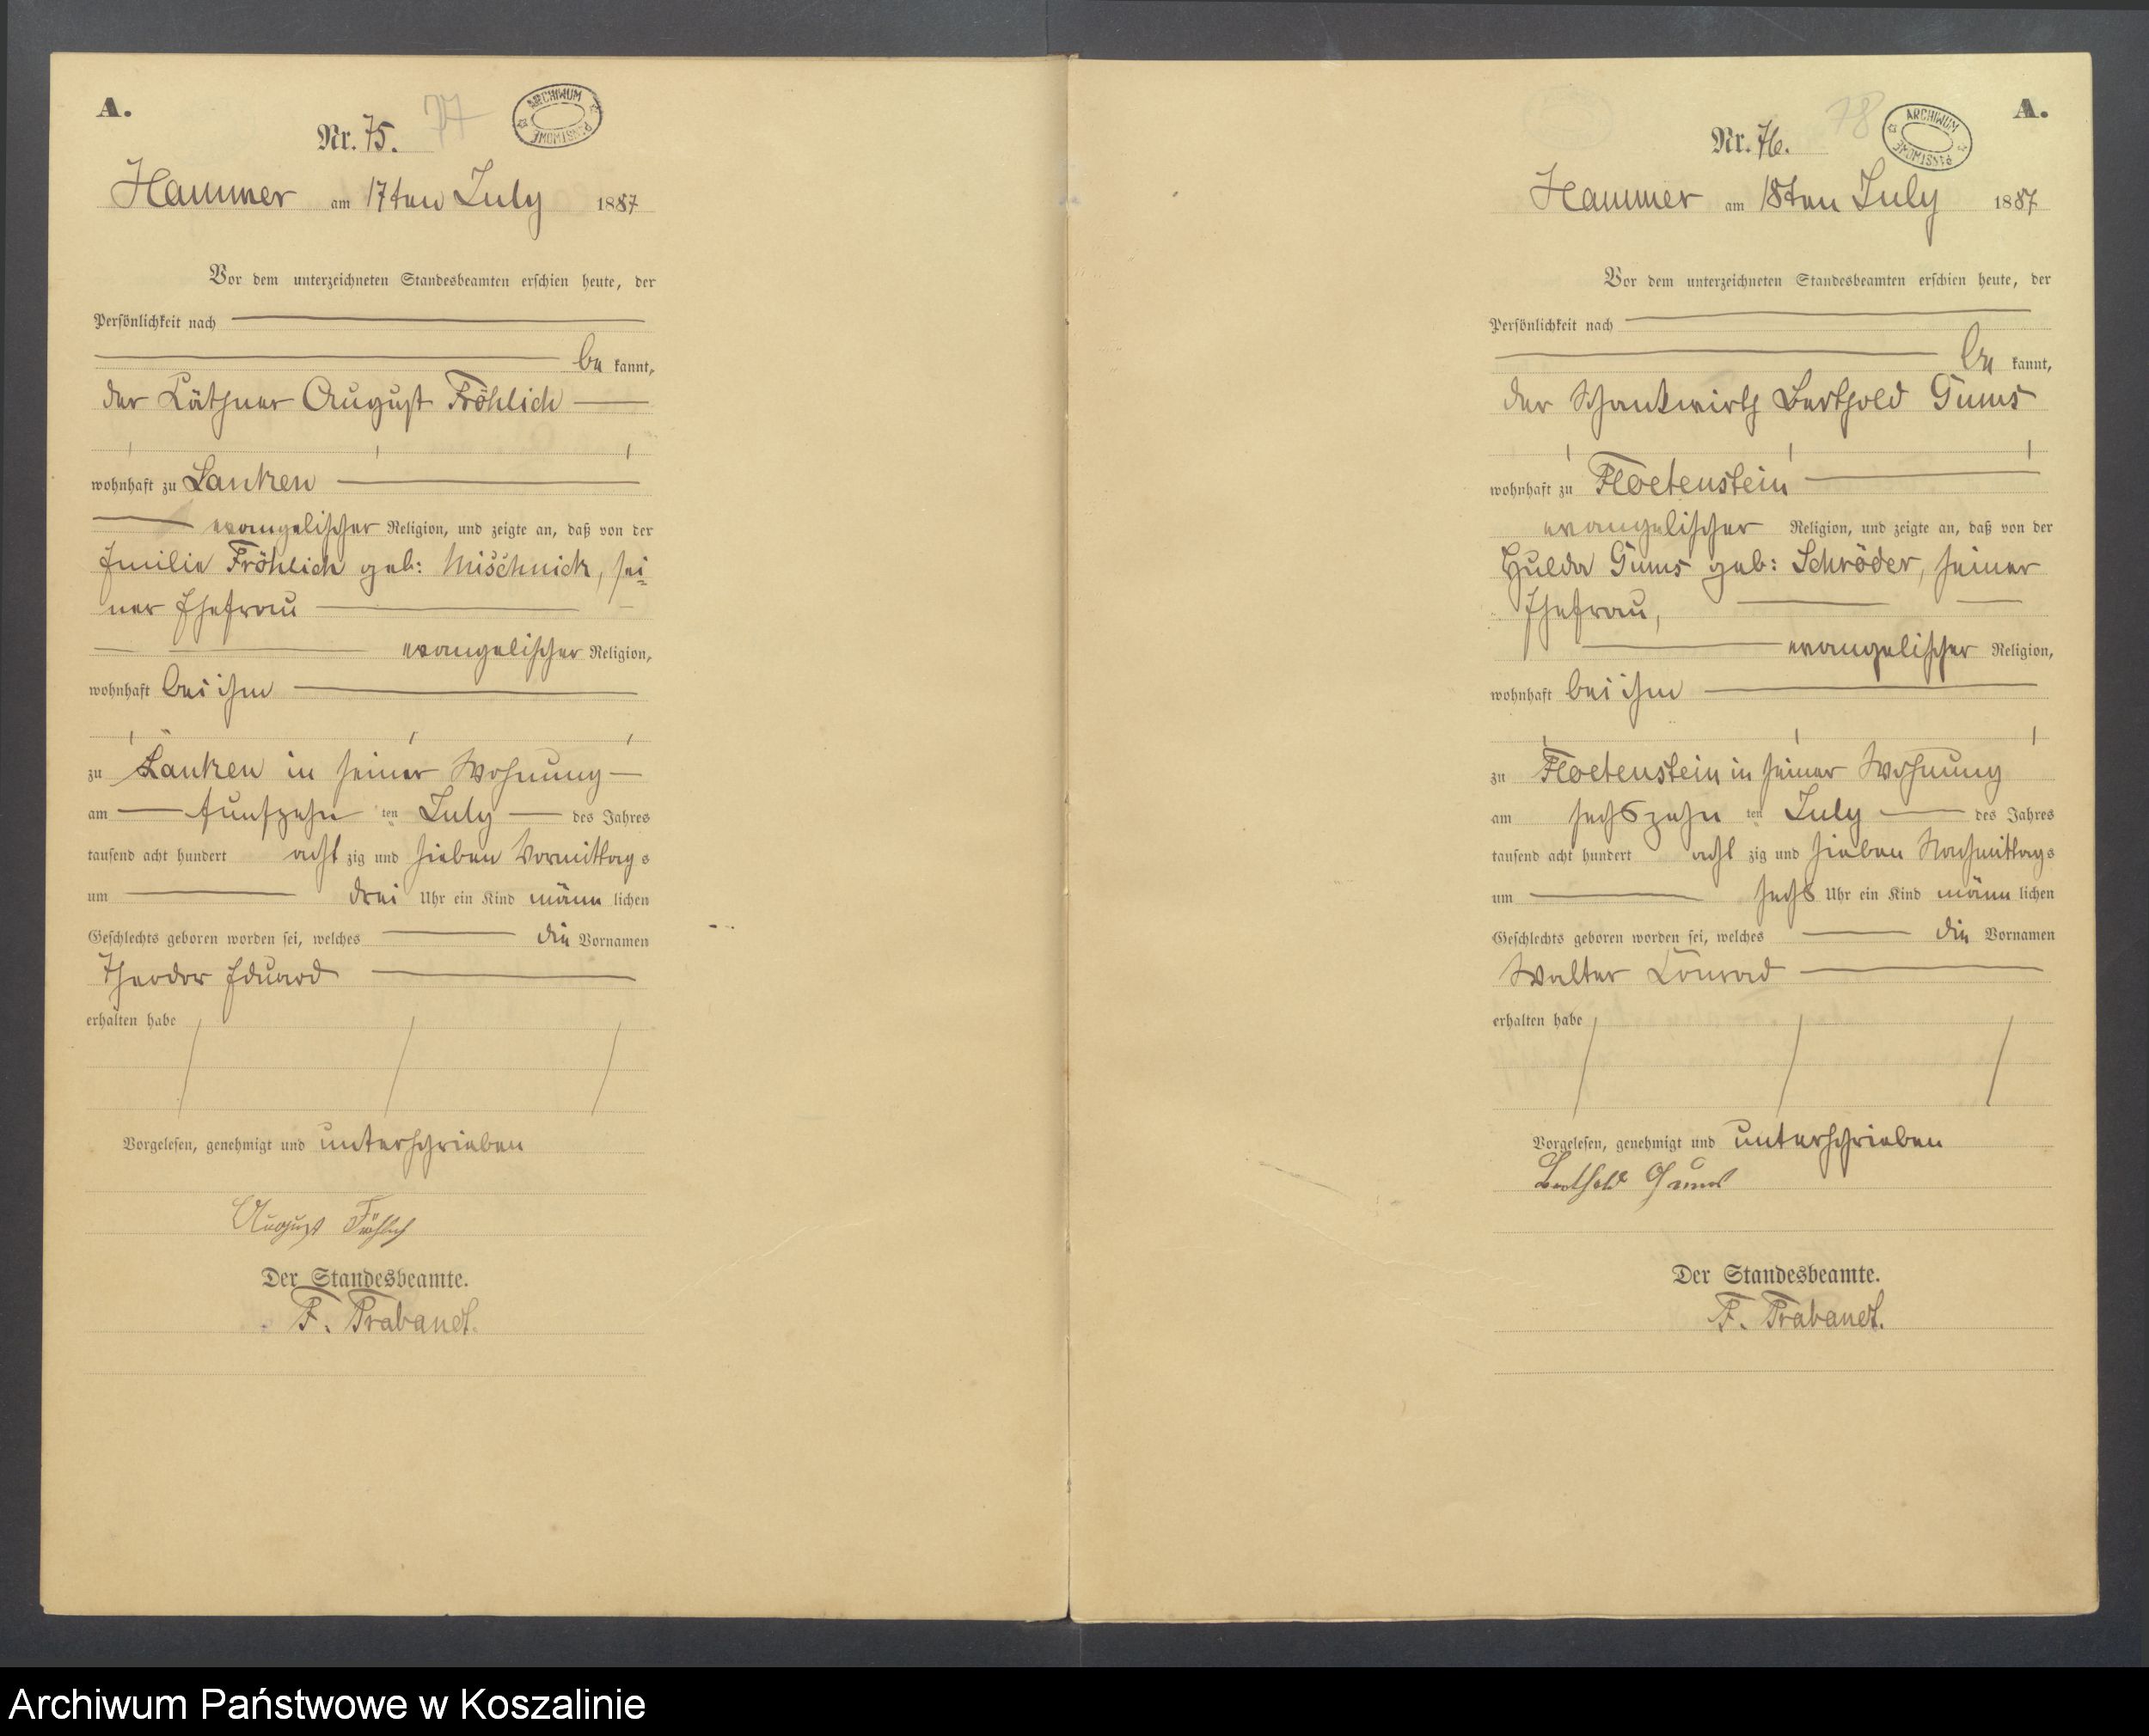 A.
Nr. 75.
77
ARCHIWUM PAŃSTWOWE
Hammer am 17ten July 1887
Vor dem unterzeichneten Standesbeamten erschien heute, der
Persönlichkeit nach
be kannt,
der Käthner August Fröhlich
wohnhaft zu Lanken
evangelischer Religion, und zeigte an, daß von der
Emilie Fröhlich geb: Mischnick, sei=
ner Ehefrau
evangelischer Religion,
wohnhaft bei ihm
zu Lanken in seiner Wohnung
am funfzehn ten July des Jahres
tausend acht hundert acht zig und sieben Vormittags
um drei Uhr ein Kind männ lichen
Geschlechts geboren worden sei, welches die Vornamen
Theodor Eduard
erhalten habe
Vorgelesen, genehmigt und unterschrieben
August Fröhlich
Der Standesbeamte.
F. Trabandt.
A.
Nr. 76.
78
ARCHIWUM PAŃSTWOWE
Hammer am 18ten July 1887
Vor dem unterzeichneten Standesbeamten erschien heute, der
Persönlichkeit nach
be kannt,
der Schankwirth Berthold Gums
wohnhaft zu Floetenstein
evangelischer Religion, und zeigte an, daß von der
Hulda Gums geb: Schröder, seiner
Ehefrau,
evangelischer Religion,
wohnhaft bei ihm
zu Floetenstein in seiner Wohnung
am sechszehn ten July des Jahres
tausend acht hundert acht zig und sieben Nachmittags
um sechs Uhr ein Kind männ lichen
Geschlechts geboren worden sei, welches die Vornamen
Walter Conrad
erhalten habe
Vorgelesen, genehmigt und unterschrieben
Berthold Gums
Der Standesbeamte.
F. Trabandt.
Archiwum Państwowe w Koszalinie